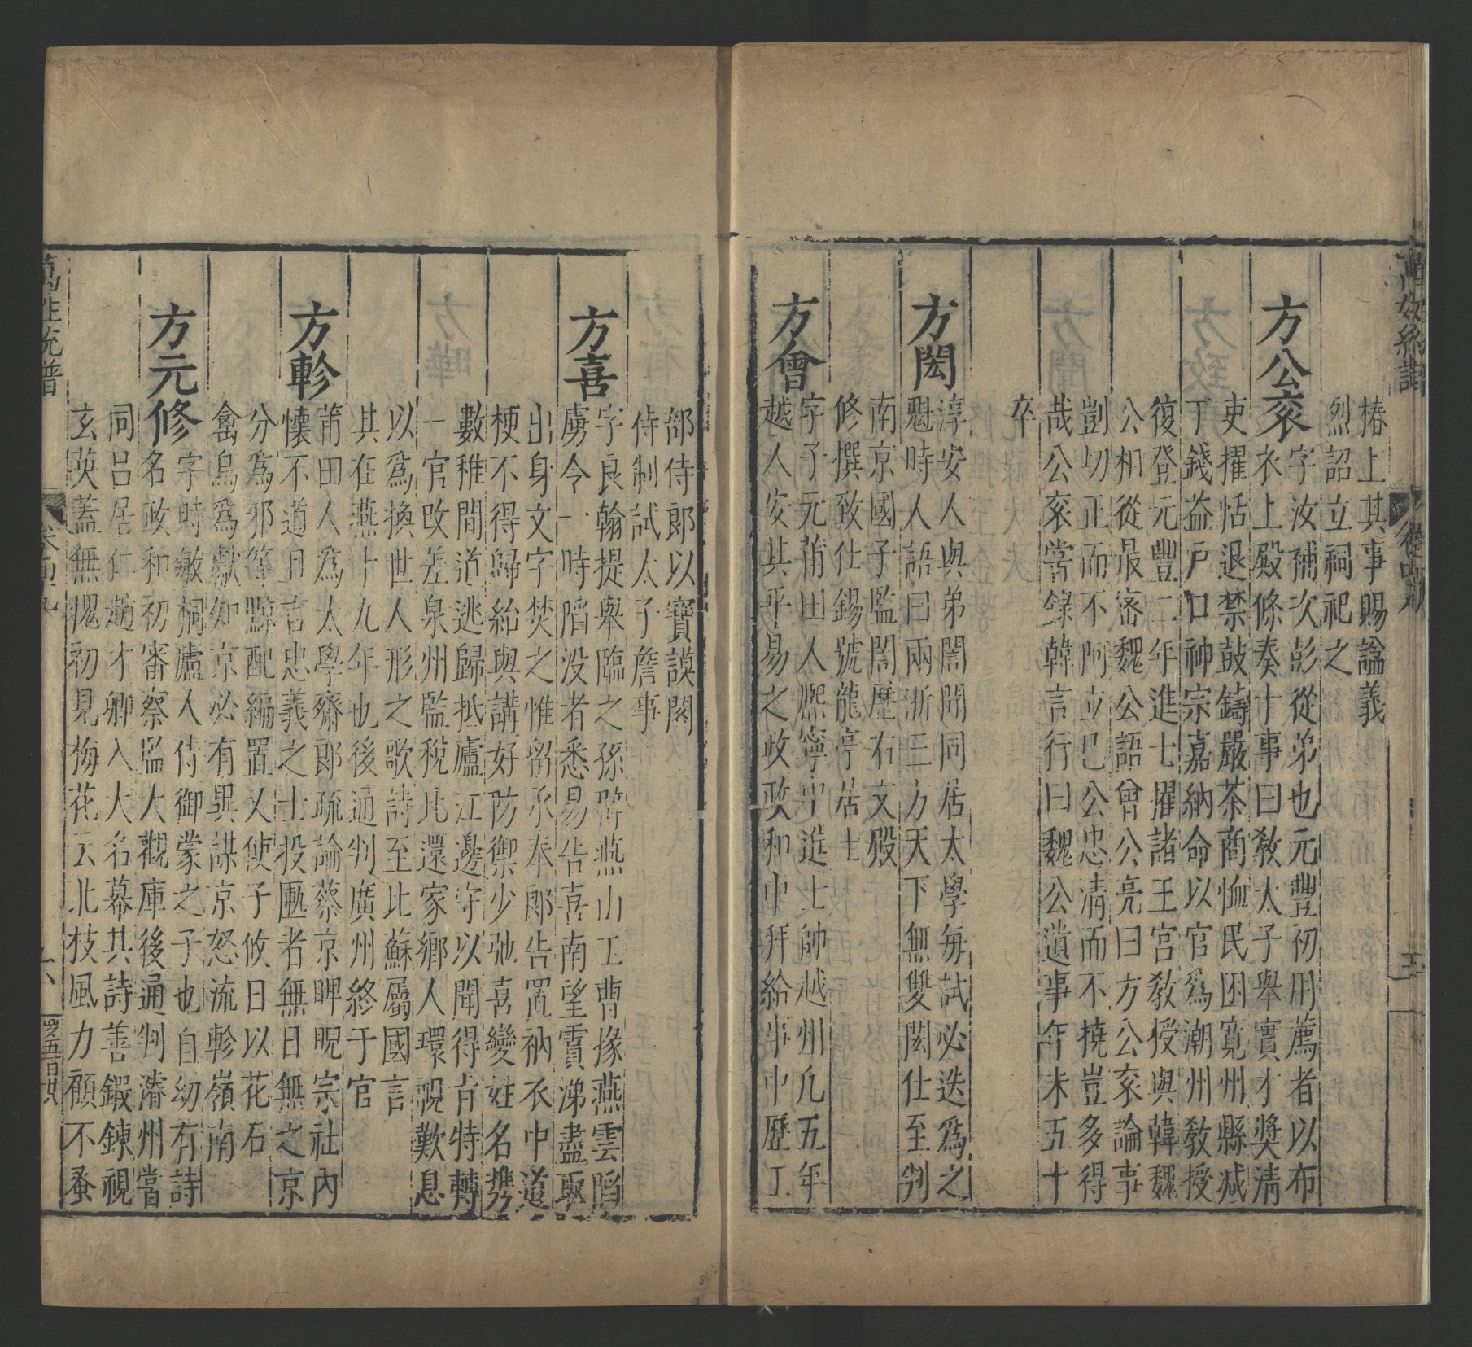 椿上其事賜論義
烈詔立祠祀之
方公衮字汝補次彭從弟也元豐初用薦者以布
衣上殿條奏十事曰教太子舉實才奬清
吏擢恬退禁鼓鑄嚴茶商恤民困寬州縣减
丁錢益戶口神宗嘉納命以官爲潮州教授
復登元豐二年進士擢諸王宮教授與韓魏
公相從最密魏公語曾公亮曰方公衮論事
剴切正而不阿立巳公忠清而不撓豈多得
哉公衮嘗錄韓言行曰魏公遺事年未五十
卒
方闳淳安人與弟誾聞同居太學毎試必迭爲之
魁時人語曰兩浙三方天下無雙闳仕至判
南京國子監誾歷右文殿
修撰致仕錫號龍亭居士
方會字子元莆田人熈寧中進士帥越州凡五年
越人安其平易之政政和中拜給事中歷工
部侍郎以寶謨閣
侍制試太子詹事
方喜字良翰提舉臨之孫將燕山工曹掾燕雲陷
虜今一時陷没者悉易告喜南望霣涕盡取
出身文字焚之惟留承奉郎告置衲衣中道
梗不得歸紿與講好防禦少弛喜變姓名携
數稚間道逃歸抵廬江邊守以聞得肓特轉
一官改差泉州監稅比還家鄉人環覩歎息
以爲換世人形之歌詩至比蘇屬國言
其在燕十九年也後通判廣州終于官
方軫莆田人爲太學齋郎疏論蔡京睥睨宗社内
懷不道且言忠義之士投匭者無日無之京
分爲邪等黥配編置乂使子攸日以花石
禽鳥爲獻知京必有異謀京怒流軫嶺南
方元修字時敏桐廬人侍御蒙之子也自幼有詩
名政和初審察監大觀庫後通判濬州嘗
同呂居仁趙才卿入大名幕其詩善鍜鍊視
玄英蓋無愧初見梅花云北枝風力顧不蚤
萬姓統譜
卷四十九
六